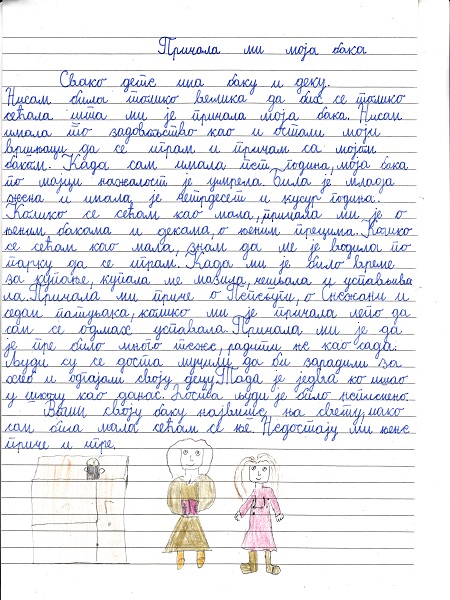 Причала ми моја бака
Свако дете има баку и деку.
Нисам била толико велика да бих се толико
сећала шта ми је причала моја бака. Нисам
имала то задовољство као и остали моји
вршњаци да се играм и причам са мојом
баком. Када сам имала пет година, моја бака
по мајци нажалост је умрела. Била је млада
жена и имала је четрдесет и кусур година.
Колико се сећам као мала, причала ми је о
њеним бакама и декама, о њеним прецима. Колико
се сећам као мала, знам да ме је водила по
парку да се играм. Када ми је било време
за купање, купала ме мазила, чешљала и успављива
ла. Причала ми приче о Пепељуги, о Снежани и
седам патуљака, колико ми је причала лепо да
сам се одмах успавала. Причала ми је да
је пре било много теже, радити не као сада.
Људи су се доста мучили да би зарадили за
хлеб и одгајали своју децу. Тада је једва ко ишао
у школу као данас. Доста људи је било неписмено.
Волим своју баку највише, на свету, иако
сам била мала сећам се ње. Недостају ми њене
приче и игре.